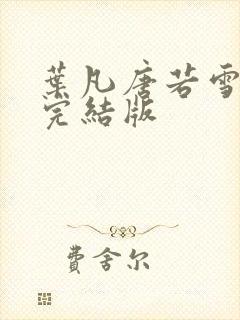 葉凡唐若雪
完結版
費舍尔